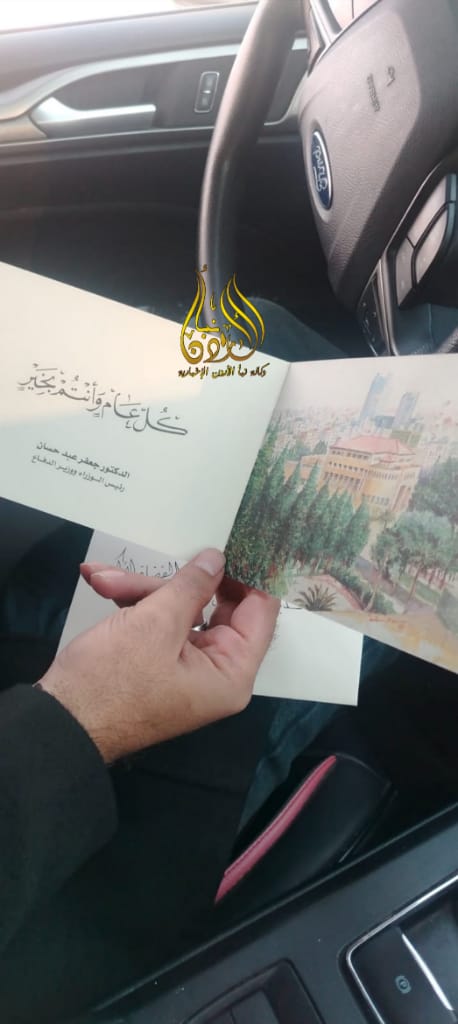 نبأ الأردن
وكالة نبأ الأردن الإخبارية
كُلُّ عَامٍ وَأَنْتُمْ بِخَيْرٍ
الدكتور جعفر عبد حسان
رئيس الوزراء ووزير الدفاع
Ford